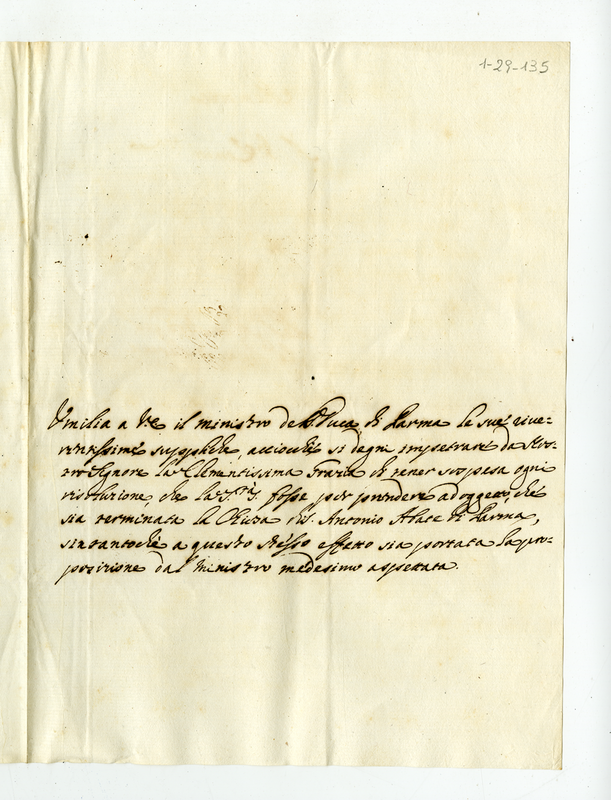 1-29-135
Umilia a VE il ministro del Sr Duca di Parma le sue rive-
rentissime suppliche, acciochè si degni impetrare da Nos-
tro Signore la Clementissima Grazia di tener sospesa ogni
risoluzione, che la fosse per prendere ad oggetto, che
sia terminata la Chiesa di S. Antonio Abate di Parma,
sintantochè a questo stesso effetto sia portata la pro-
posizione dal ministro medesimo aspettata.